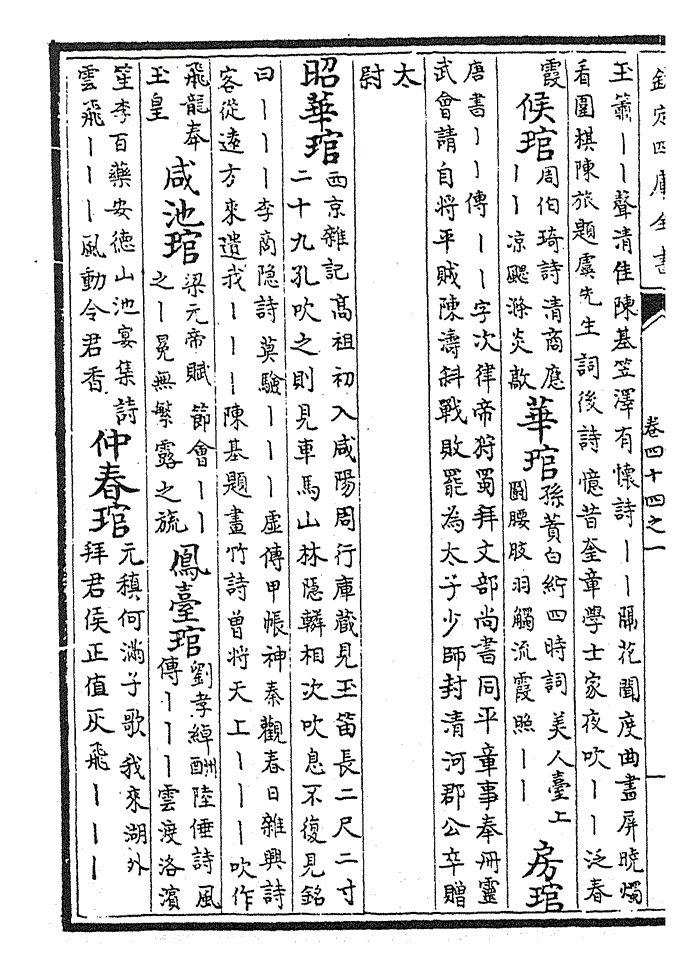 欽定四庫全書
卷四十四之一
玉簫丨丨聲清佳陳基笠澤有懷詩丨丨隔花聞度曲畫屏曉燭
看圍棋陳旅題虞先生詞後詩憶昔奎章學士家夜吹丨丨泛春
霞
候琯
周伯琦詩清商應
丨丨凉颸滌炎歊
華琯
孫蕡白紵四時詞美人臺上
鬭腰肢羽觴流霞照丨丨
房琯
唐書丨丨傳丨丨字次律帝狩蜀拜文部尚書同平章事奉冊靈
武會請自將平賊陳濤斜戰敗罷為太子少師封清河郡公卒贈
太
尉
昭華琯
西京雜記髙祖初入咸陽周行庫藏見玉笛長二尺二寸
二十九孔吹之則見車馬山林隱轔相次吹息不復見銘
曰丨丨丨李商隱詩莫驗丨丨丨虛傳甲帳神秦觀春日雜興詩
客從遠方來遺我丨丨丨陳基題畫竹詩曾將天上丨丨丨吹作
飛龍奉
玉皇
咸池琯
梁元帝賦節會丨丨
之丨冕無繁露之旒
鳳臺琯
劉孝綽酬陸倕詩風
傳丨丨丨雲渡洛濱
笙李百藥安德山池宴集詩
雲飛丨丨丨風動令君香
仲春琯
元稹何滿子歌我來湖外
拜君侯正值灰飛丨丨丨